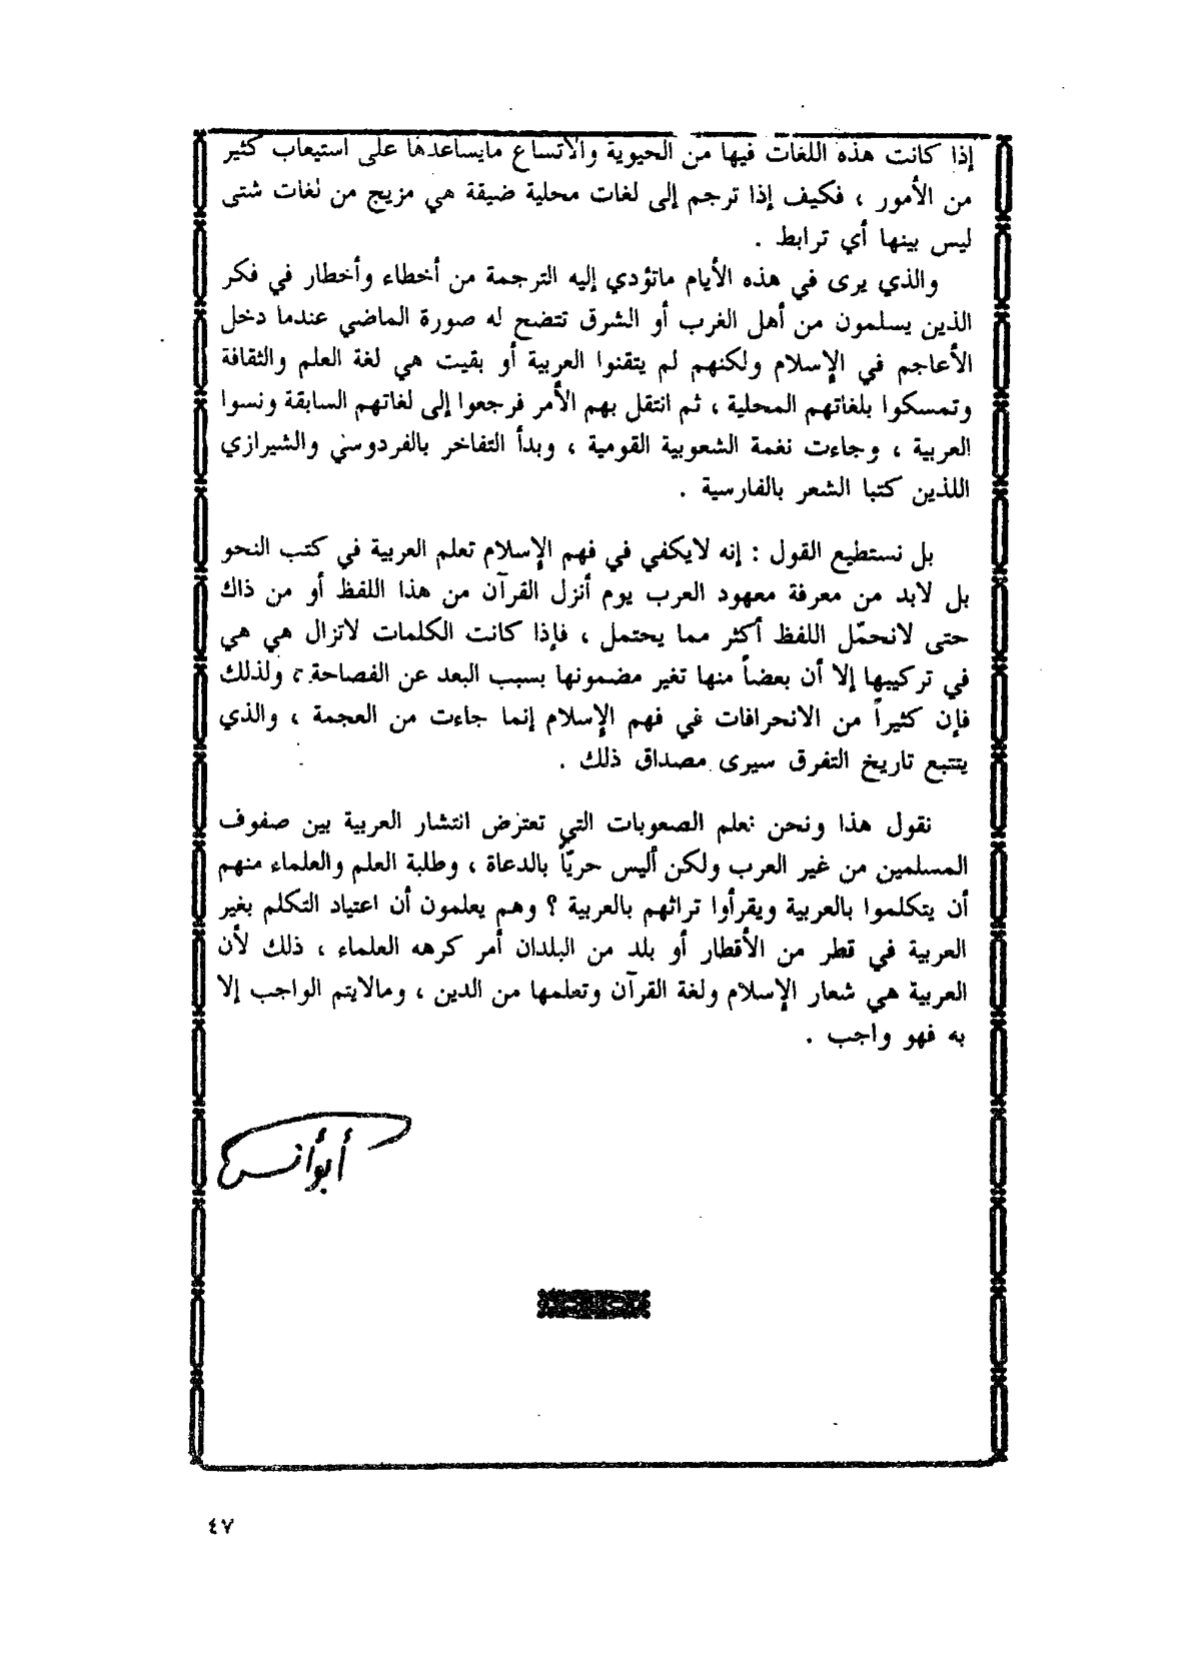 إذا كانت هذه اللغات فيها من الحيوية والاتساع مايساعدها على استيعاب كثير
من الأمور ، فكيف إذا ترجم إلى لغات محلية ضيقة هي مزيج من لغات شتى
ليس بينها أي ترابط .
والذي يرى في هذه الأيام ماتؤدي إليه الترجمة من أخطاء وأخطار في فكر
الذين يسلمون من أهل الغرب أو الشرق تتضح له صورة الماضي عندما دخل
الأعاجم في الإسلام ولكنهم لم يتقنوا العربية أو بقيت هي لغة العلم والثقافة
وتمسكوا بلغاتهم المحلية ، ثم انتقل بهم الأمر فرجعوا إلى لغاتهم السابقة ونسوا
العربية ، وجاءت نغمة الشعوبية القومية ، وبدأ التفاخر بالفردوسي والشيرازي
اللذين كتبا الشعر بالفارسية .
بل نستطيع القول : إنه لايكفي في فهم الإسلام تعلم العربية في كتب النحو
بل لابد من معرفة معهود العرب يوم أنزل القرآن من هذا اللفظ أو من ذاك
حتى لانحمّل اللفظ أكثر مما يحتمل ، فإذا كانت الكلمات لاتزال هي هي
في تركيبها إلا أن بعضاً منها تغير مضمونها بسبب البعد عن الفصاحة ، ولذلك
فإن كثيراً من الانحرافات في فهم الإسلام إنما جاءت من العجمة ، والذي
يتتبع تاريخ التفرق سيرى مصداق ذلك .
نقول هذا ونحن نعلم الصعوبات التي تعترض انتشار العربية بين صفوف
المسلمين من غير العرب ولكن أليس حريّاً بالدعاة ، وطلبة العلم والعلماء منهم
أن يتكلموا بالعربية ويقرأوا تراثهم بالعربية ؟ وهم يعلمون أن اعتياد التكلم بغير
العربية في قطر من الأقطار أو بلد من البلدان أمر كرهه العلماء ، ذلك لأن
العربية هي شعار الإسلام ولغة القرآن وتعلمها من الدين ، ومالايتم الواجب إلا
به فهو واجب .
أبو أنس
٤٧